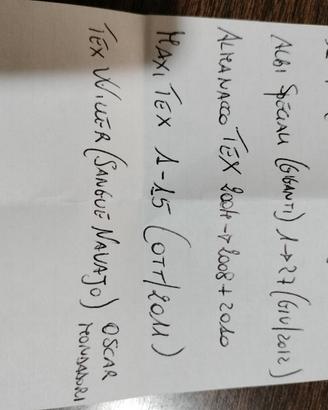 ALBI SPECIALI (GIGANTI) 1→27 (GIU/2012)
ALMANACCO TEX 2004→2008 + 2010
MAXI TEX 1-15 (OTT/2011)
TEX WILLER (SANGUE NAVAJO) OSCAR
MONDADORI